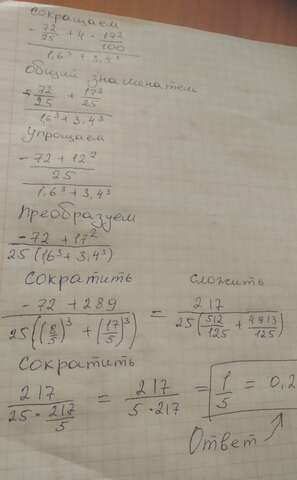 сокращаем
-72/25 + 4 · 17²/100
1,6³ + 3,4³
Общий знаменатель
-72/25 + 17²/25
1,6³ + 3,4³
Упрощаем
-72 + 12²
25
1,6³ + 3,4³
Преобразуем
-72 + 17²
25(1,6³ + 3,4³)
Сократить сложить
-72 + 289 / 25((8/5)³ + (17/5)³) = 217 / 25(512/125 + 4913/125)
Сократить
217 / 25 · 217/5 = 217 / 5 · 217 = 1/5 = 0,2
Ответ